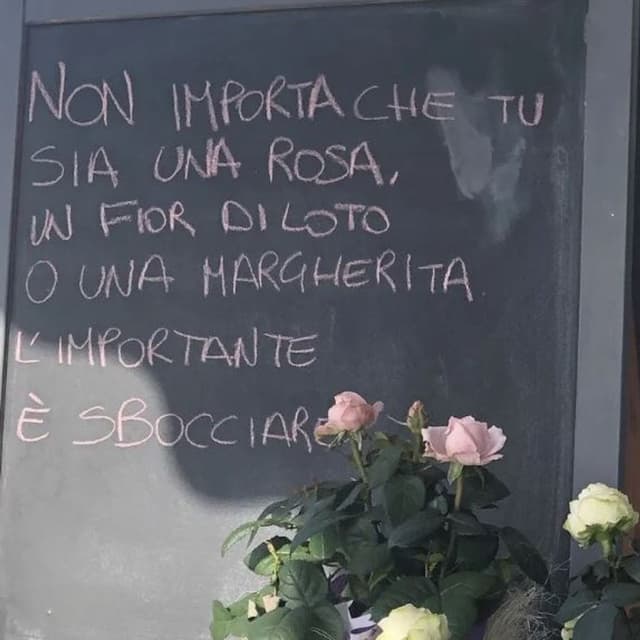 NON IMPORTA CHE TU
SIA UNA ROSA,
UN FIOR DI LOTO
O UNA MARGHERITA.
L'IMPORTANTE
È SBOCCIARE